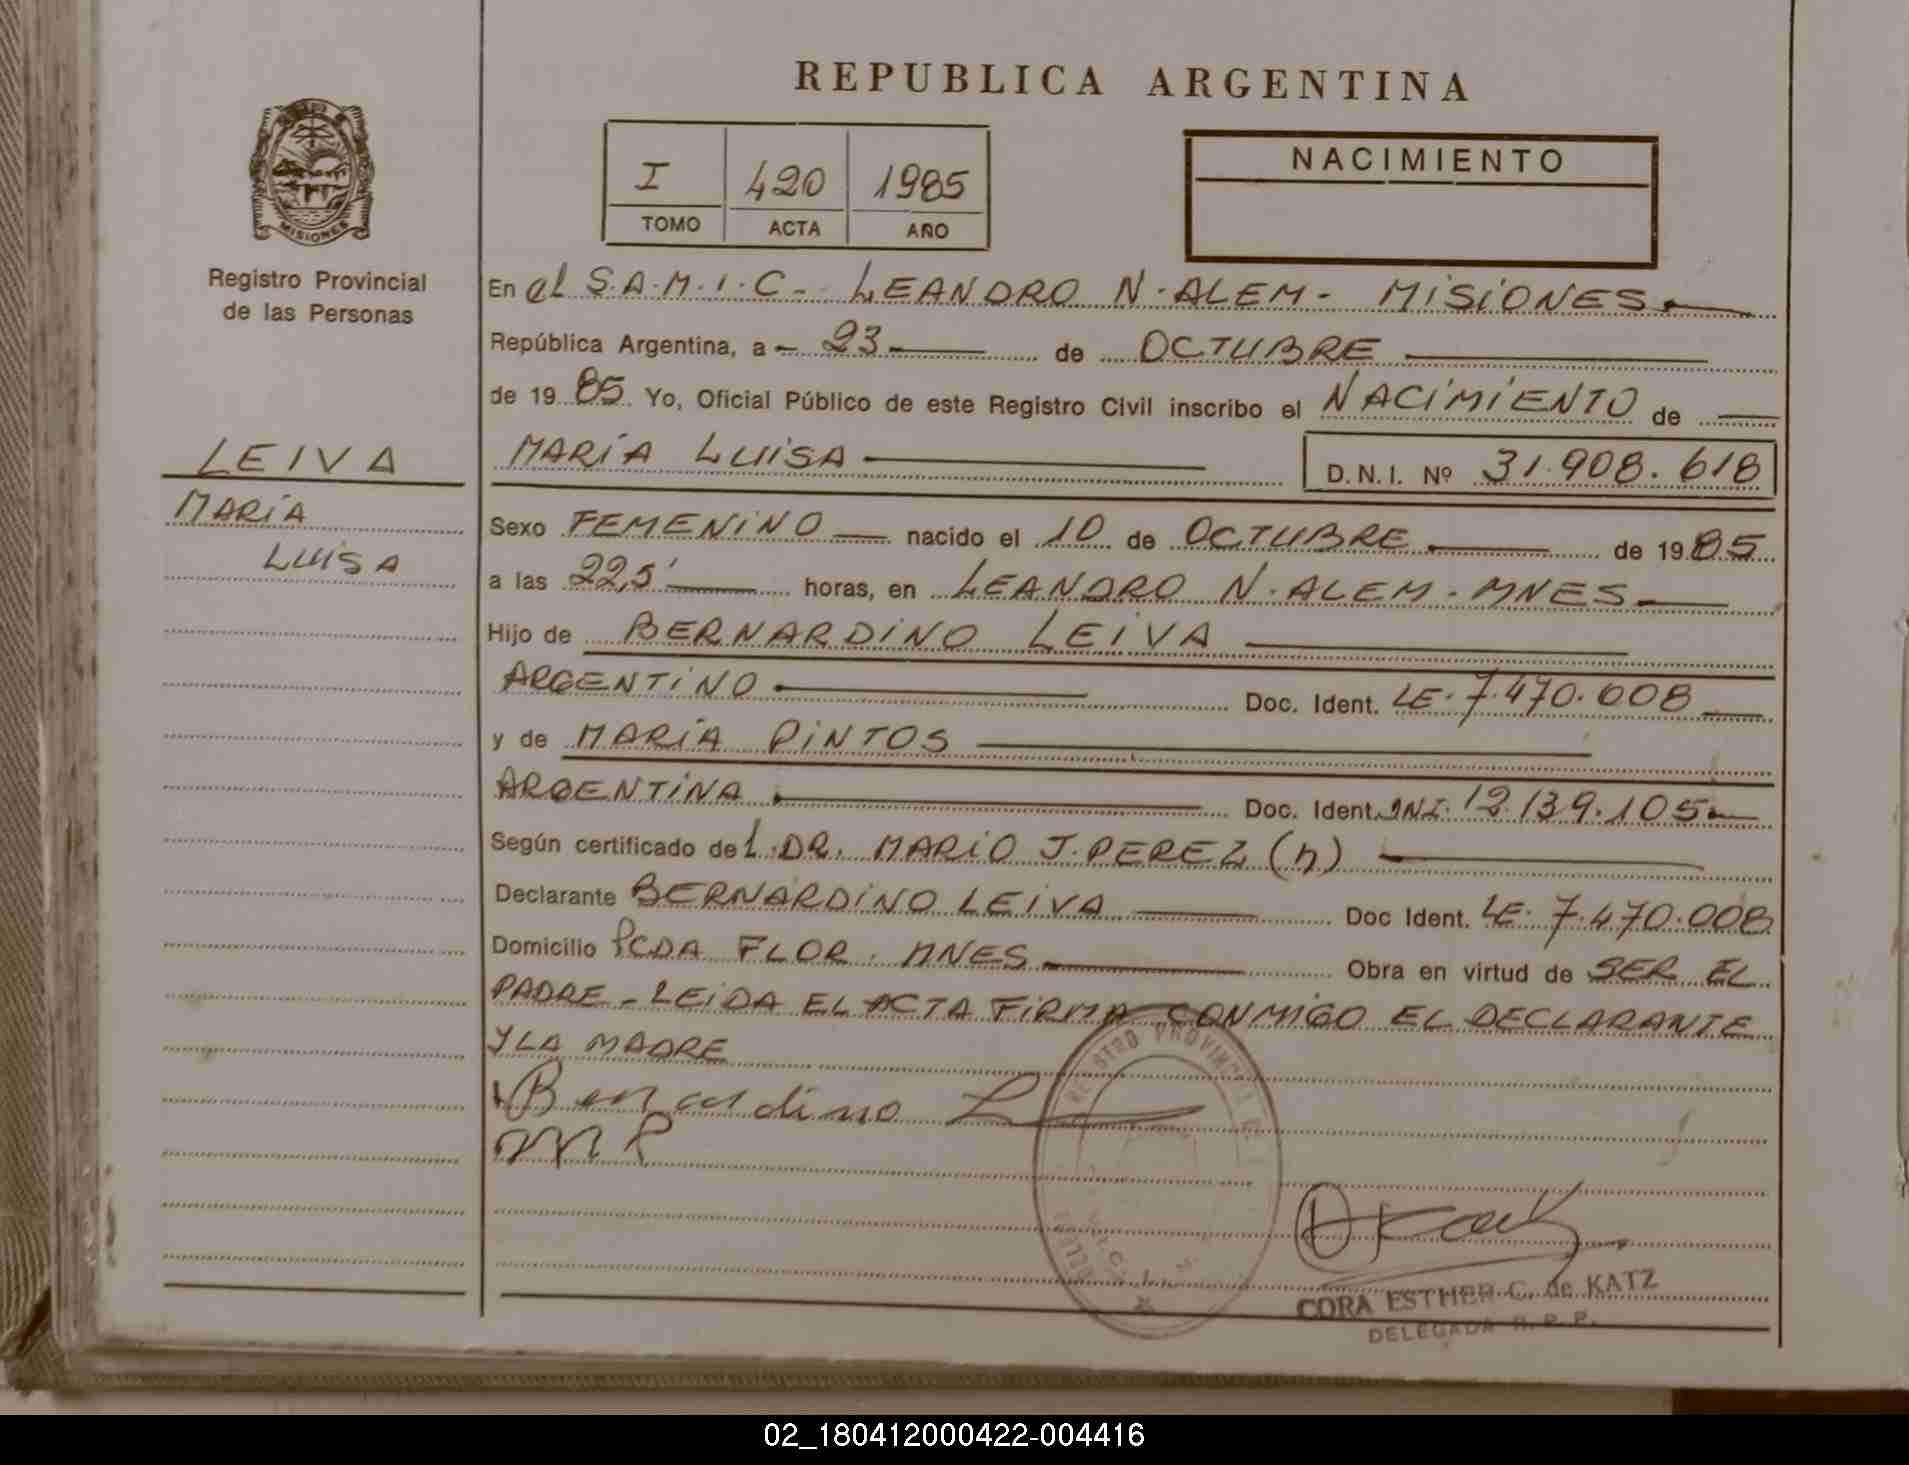 REPUBLICA ARGENTINA
I 420 1985
TOMO ACTA AÑO
NACIMIENTO
MISIONES
Registro Provincial
de las Personas
LEIVA
MARÍA
LUISA
En el S.A.M.I.C- LEANDRO N.ALEM- MISIONES
República Argentina, a - 23 de OCTUBRE
de 19 85 Yo, Oficial Público de este Registro Civil inscribo el NACIMIENTO de
MARÍA LUISA D.N.I. Nº 31.908.618
Sexo FEMENINO nacido el 10 de OCTUBRE de 19 85
a las 22,5' horas, en LEANDRO N.ALEM-MNES
Hijo de BERNARDINO LEIVA
ARGENTINO Doc. Ident. LE. 7.470.008
y de MARÍA PINTOS
ARGENTINA Doc. Ident. DNI. 12.139.105
Según certificado del DR. MARIO J. PEREZ (h)
Declarante BERNARDINO LEIVA Doc Ident. LE. 7.470.008
Domicilio PCDA FLOR. MNES Obra en virtud de SER EL
PADRE - LEIDA EL ACTA FIRMA CONMIGO EL DECLARANTE
Y LA MADRE
Bernardino L
M P
REGISTRO PROVINCIAL DE
CORA ESTHER C. de KATZ
DELEGADA R.P.P.
02_180412000422-004416